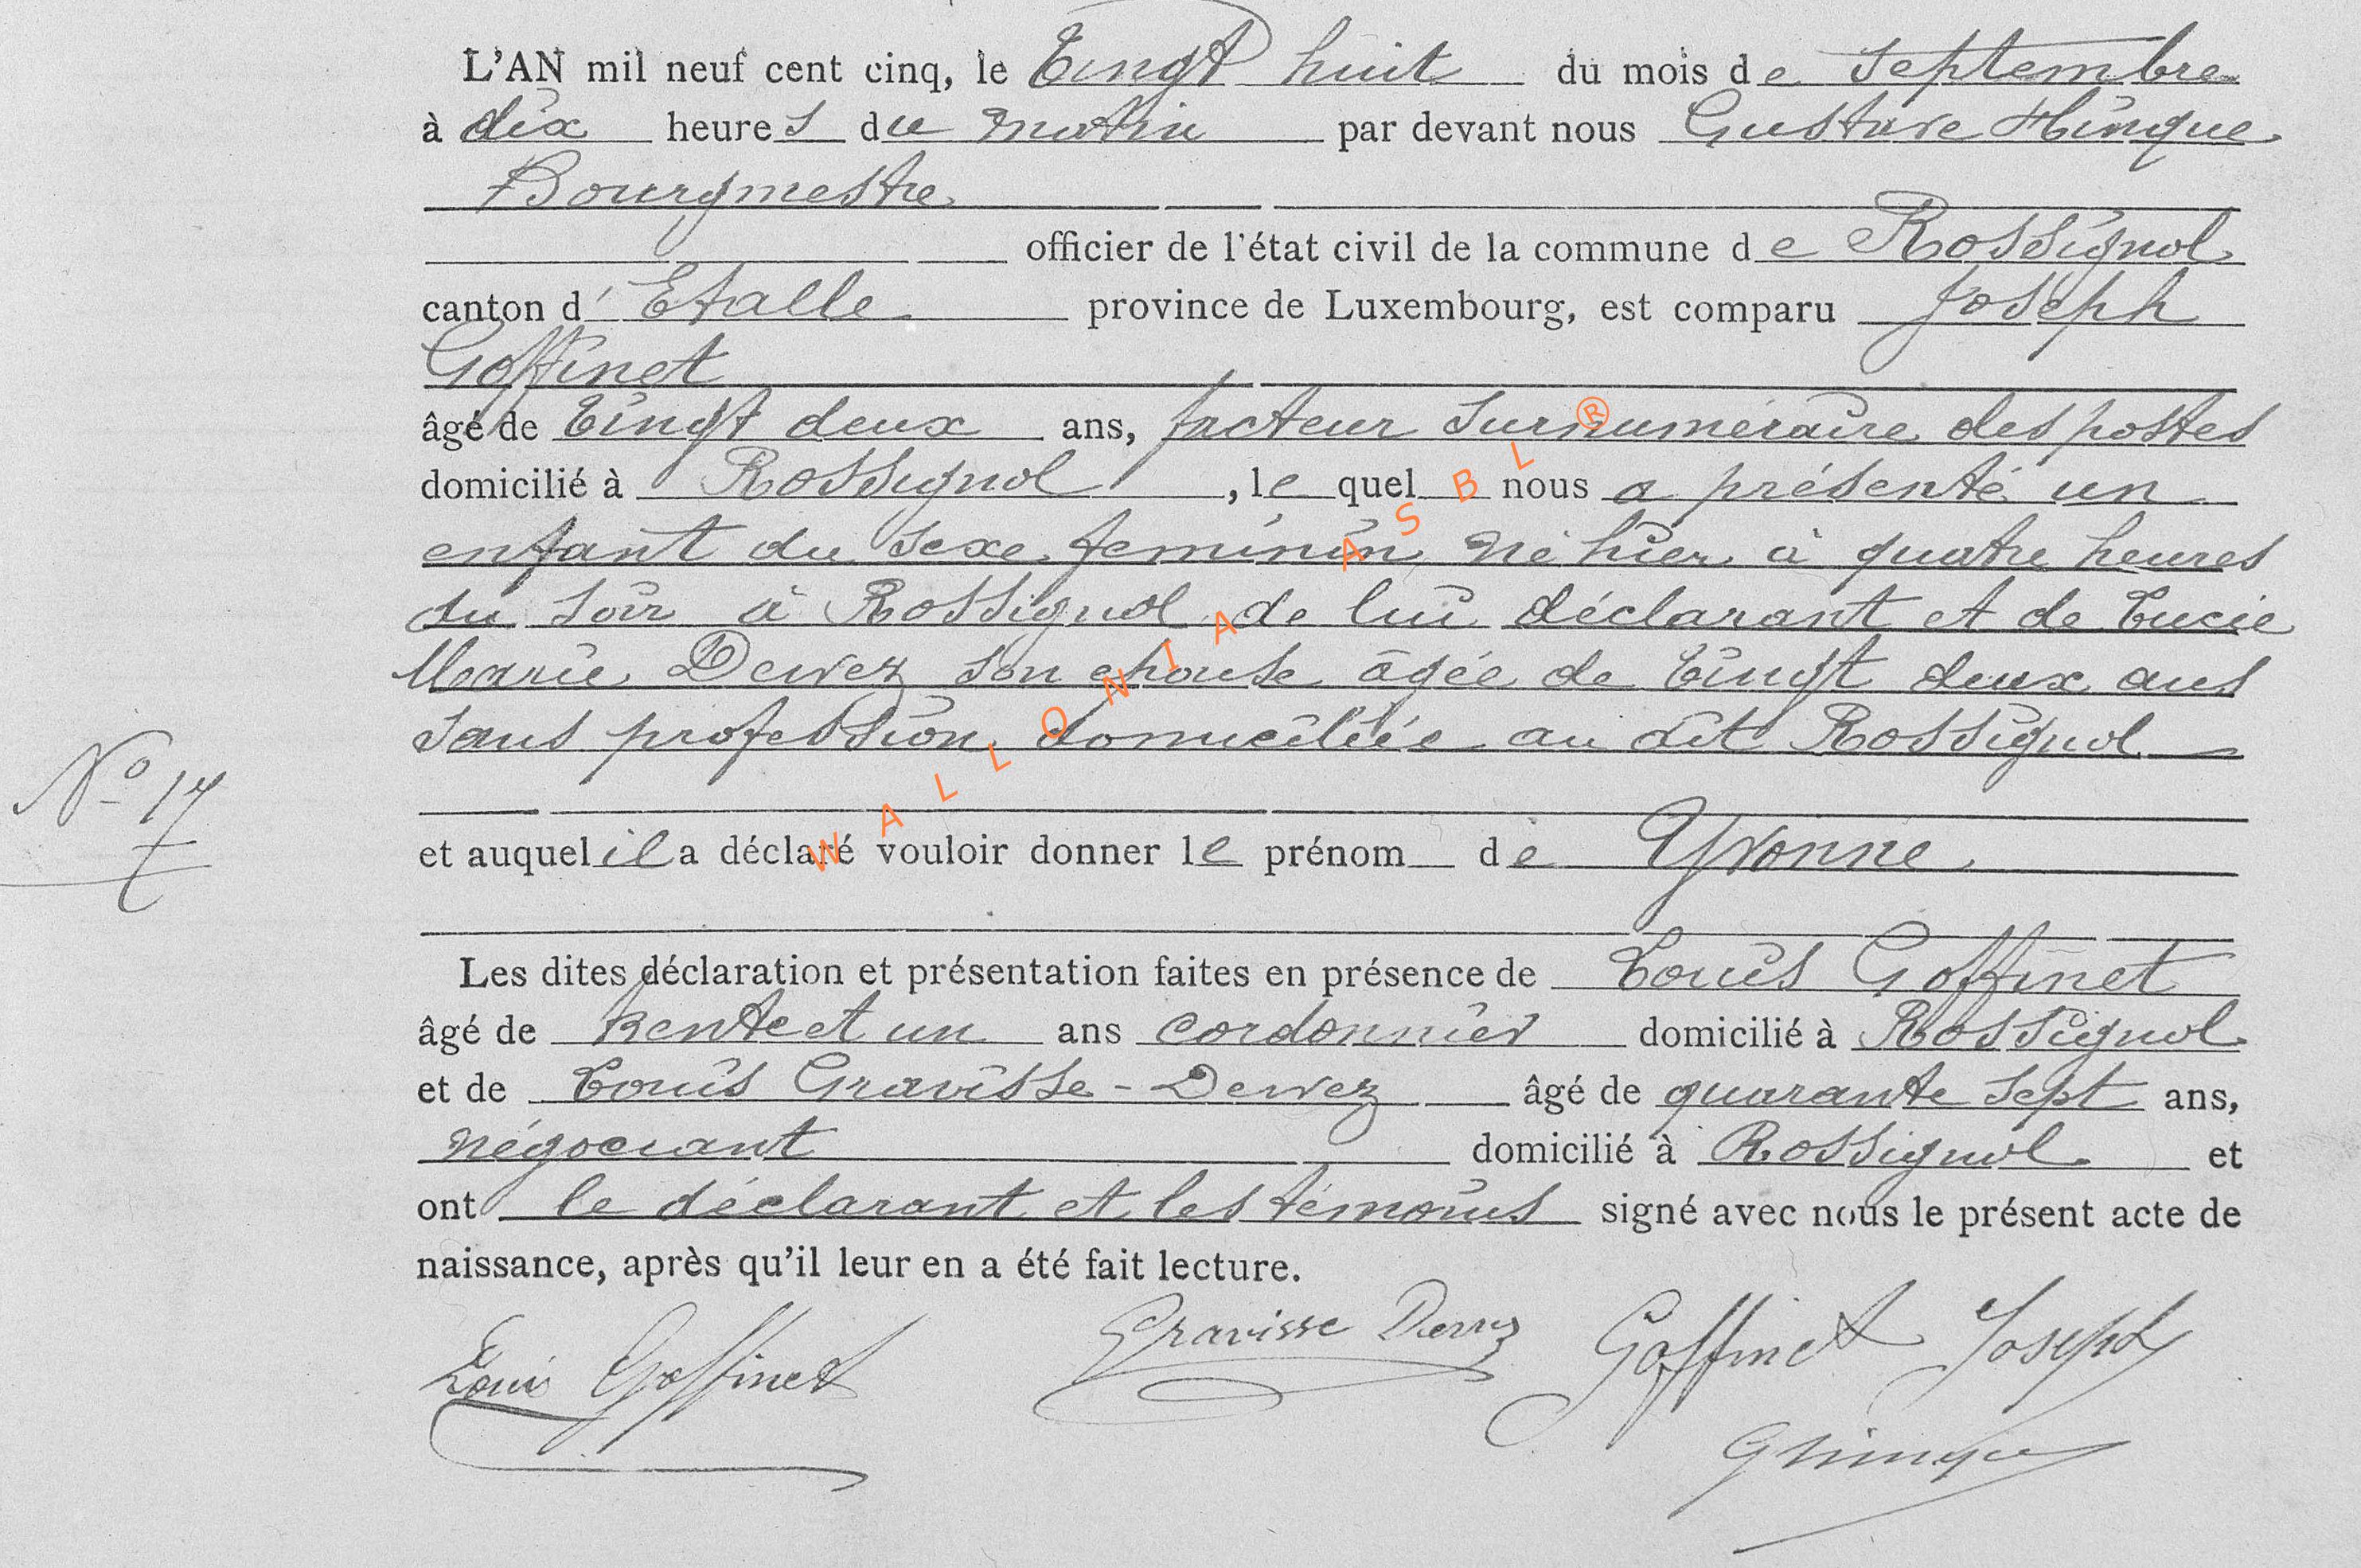 L'AN mil neuf cent cinq, le Vingt huit du mois de Septembre
à dix heures du matin par devant nous Gustave Hinque
Bourgmestre
officier de l'état civil de la commune de Rossignol
canton d'Etalle province de Luxembourg, est comparu Joseph
Goffinet
âgé de Vingt deux ans, facteur surnuméraire des postes
domicilié à Rossignol, lequel nous a présenté un
enfant du sexe feminin né hier à quatre heures
du soir à Rossignol de lui déclarant et de Lucie
Marie Dervez son epouse âgée de Vingt deux ans
sans profession domiciliée au dit Rossignol
N° 17
et auquel il a déclaré vouloir donner le prénom de Yvonne
Les dites déclaration et présentation faites en présence de Louis Goffinet
âgé de trente et un ans cordonnier domicilié à Rossignol
et de Louis Gravisse-Dervez âgé de quarante sept ans,
négociant domicilié à Rossignol et
ont le déclarant et les témoins signé avec nous le présent acte de
naissance, après qu'il leur en a été fait lecture.
Louis Goffinet Gravisse Dervez Goffinet Joseph
GHinque
WALLONIA ASBL ®